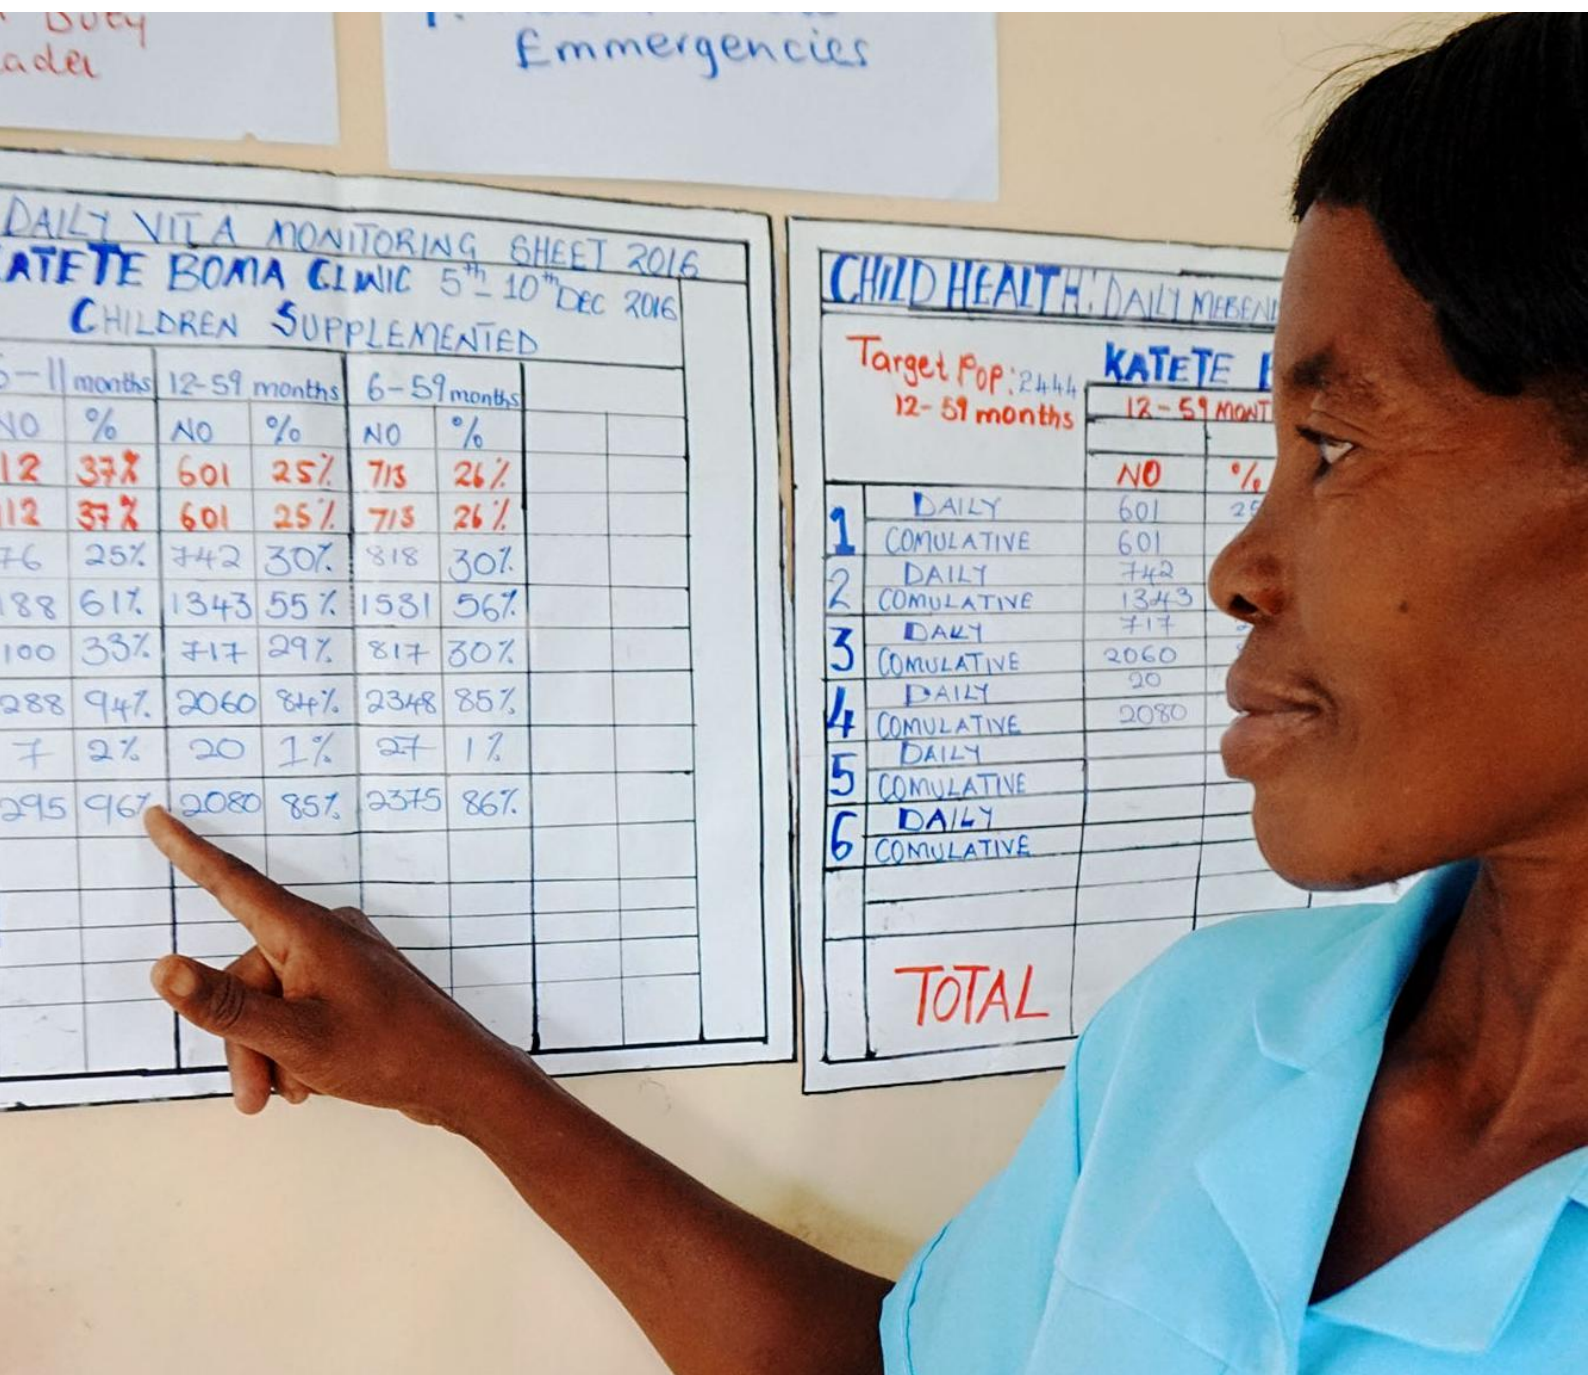 Buty
ader
Emmergencies
DAILY VIT A MONITORING SHEET 2016
KATETE BOMA CLINIC 5th - 10th DEC 2016
CHILDREN SUPPLEMENTED
6-11 months 12-59 months 6-59 months
NO % NO % NO %
112 37% 601 25% 713 26%
112 37% 601 25% 713 26%
76 25% 742 30% 818 30%
188 61% 1343 55% 1531 56%
100 33% 717 29% 817 30%
288 94% 2060 84% 2348 85%
7 2% 20 1% 27 1%
295 96% 2080 85% 2375 86%
CHILD HEALTH: DAILY MEBEND
Target Pop: 2444
12-59 months
KATETE B
12-59 MONT
NO %
1 DAILY 601 25
COMULATIVE 601
2 DAILY 742
COMULATIVE 1343
3 DAILY 717
COMULATIVE 2060
4 DAILY 20
COMULATIVE 2080
5 DAILY
COMULATIVE
6 DAILY
COMULATIVE
TOTAL